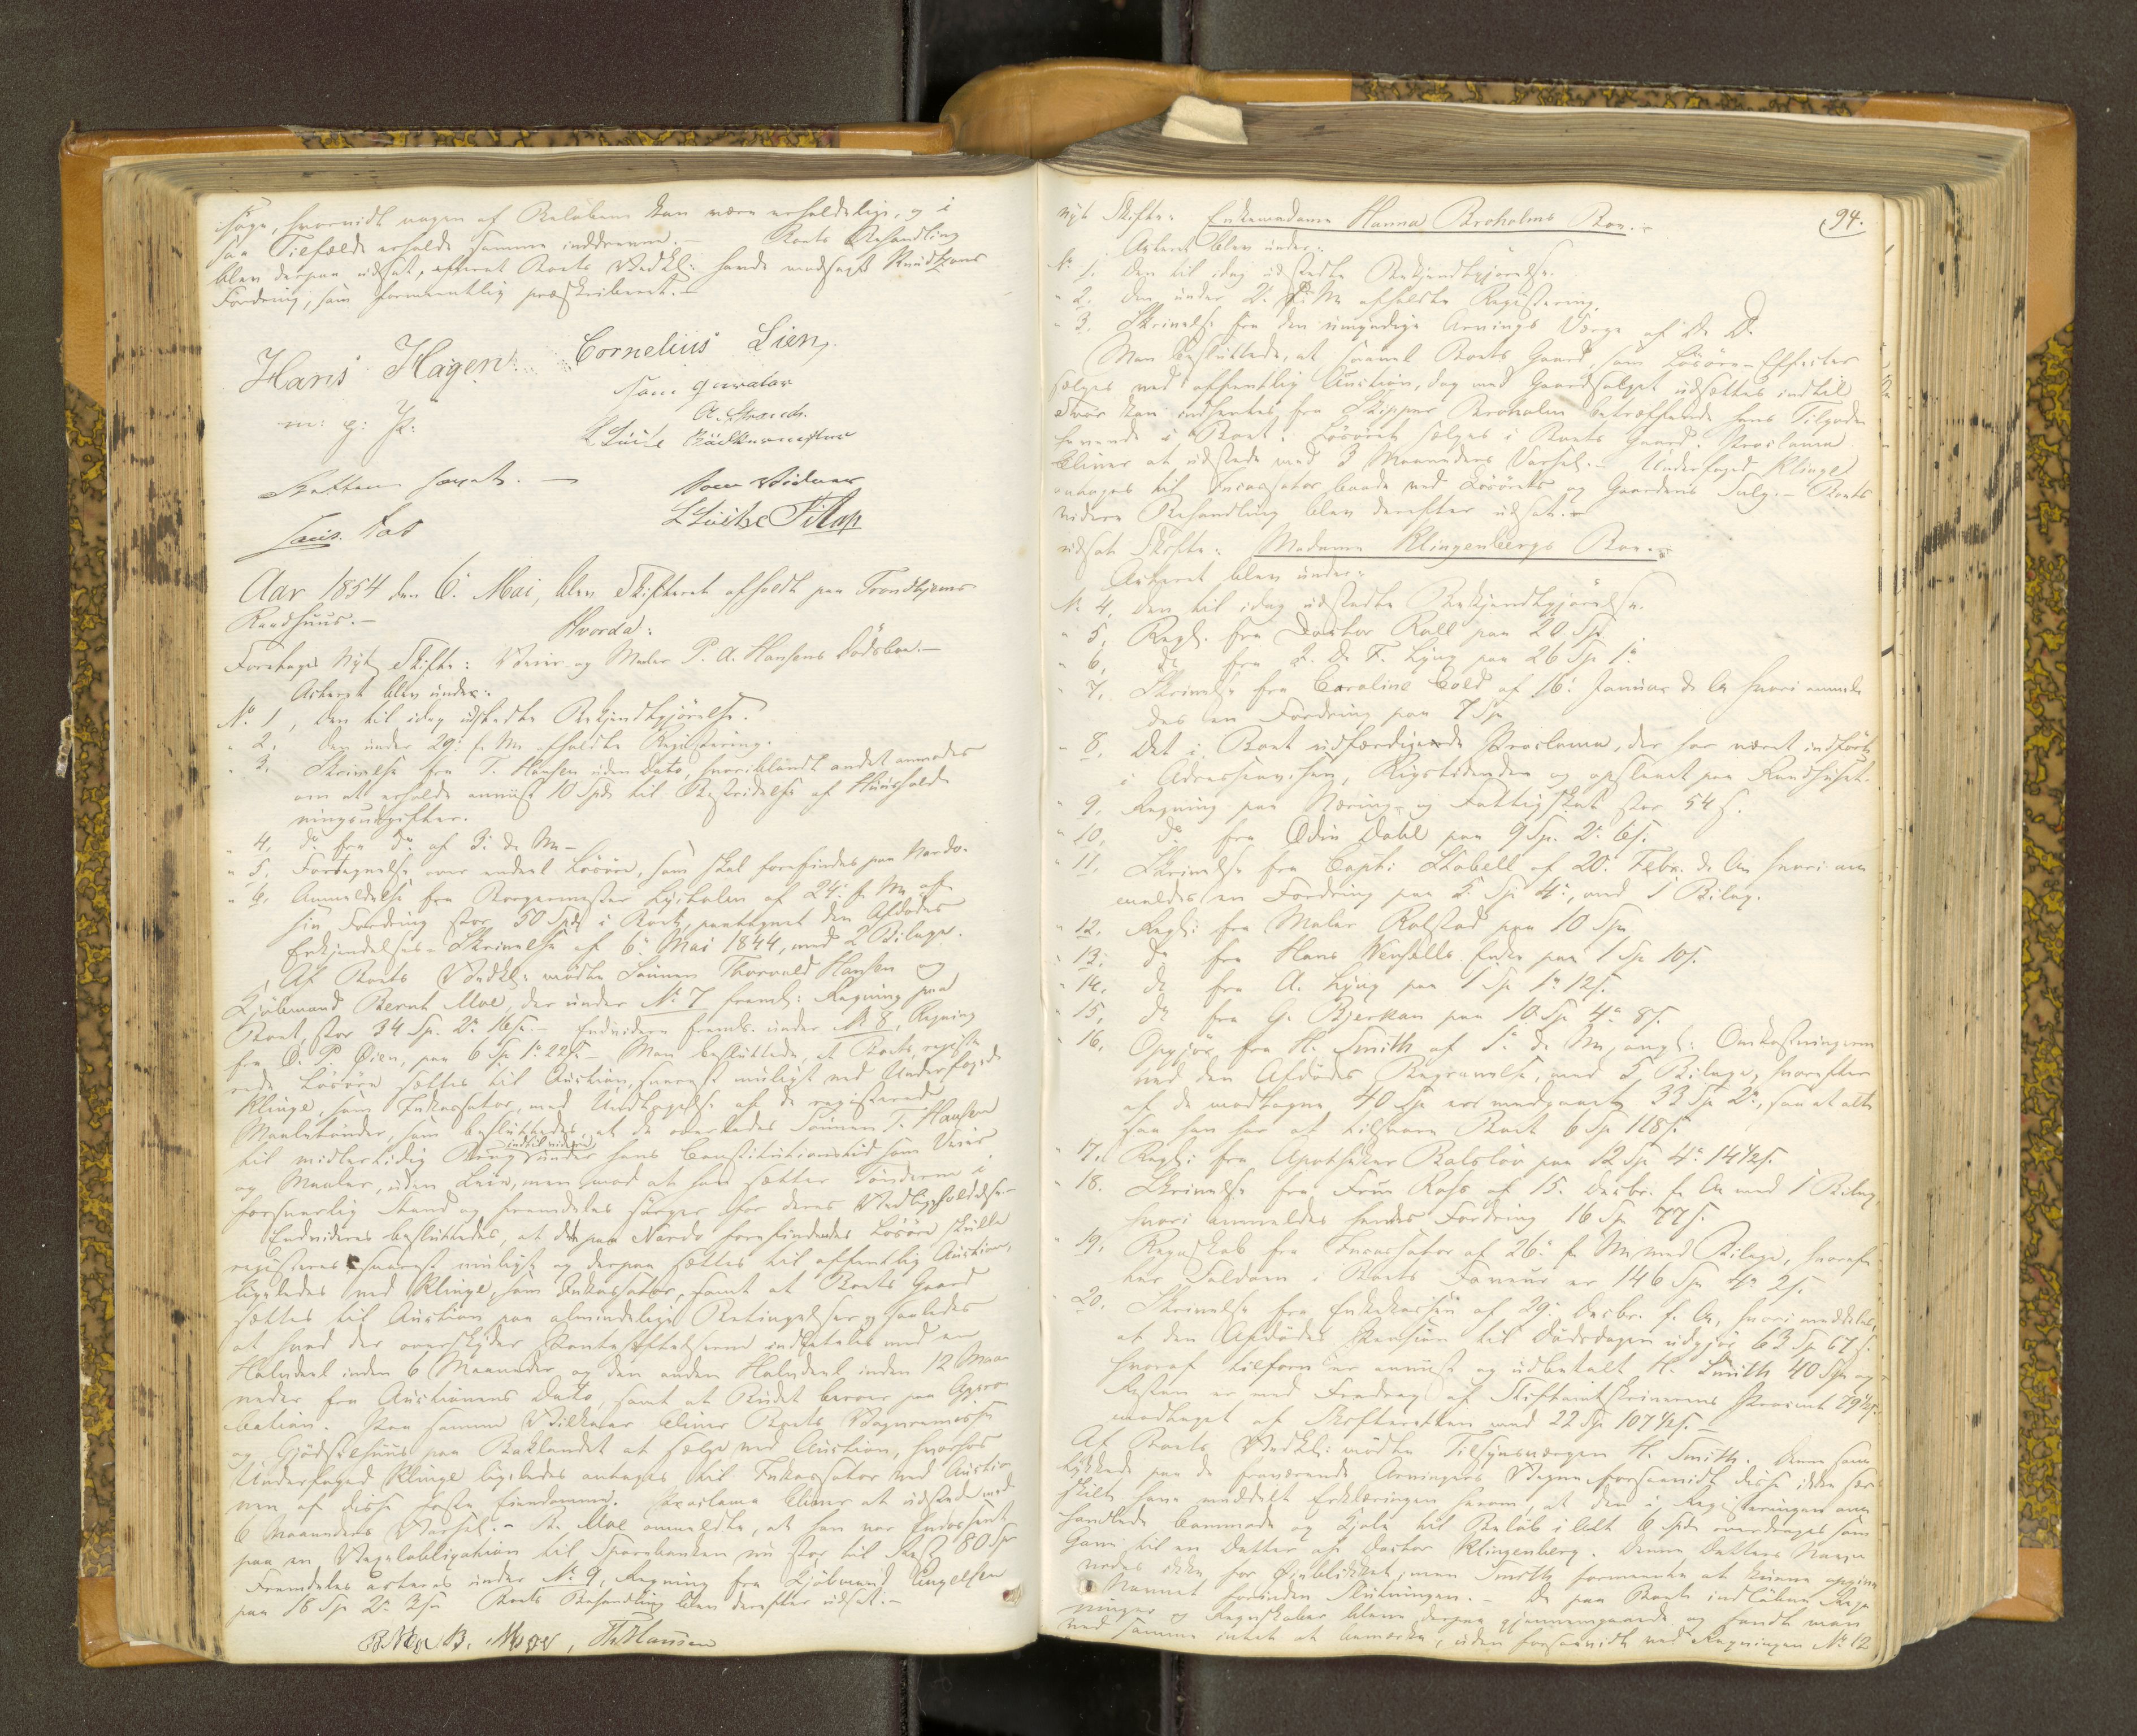 søge, hvorvidt nogen af Beløbene kan være erholdelige, og i
saa Tilfælde erholde samme inddrevne. – Boets Behandling
blev derpaa udsat, efterat Boets Vedkl: havde modsagt Knudtzons
Fordring, som formeentlig præskriberet. –
Hans Hagen Cornelius Lien
m: p: P: som qurator
A. Strand.
L Lütze Bødkermester
Retten hævet. – Som Vidner
L Lütze
Aar 1854 den 6' Mai, blev Skifteret afholdt paa Trondhjems
Raadhuus. –
Hvorda:
Foretaget Nyt Skifte: Veier og Maaler P. A. Hansens Dødsboe. –
Acteret blev under:
No 1, den til idag udstedte Bekjendtgjørelse.
" 2, den under 29' f. M. afholdte Registrering.
" 3, Skrivelse fra T. Hansen uden Dato, hvoriblandt andet anmodes
om at erholde anviist 10 Spd. til Bestridelse af Huushold-
ningsudgifter.
" 4, do fra do af 3' d. M. –
" 5, Fortegnelse over endeel Løsøre, som skal forefindes paa Nardo.
" 6, Anmeldelse fra Borgermester Lysholm af 24' f. M. af
sin Fordring stor 50 Spd. i Boet, paategnet den Afdødes
Erkjendelses-Skrivelse af 6' Mai 1844, med 2 Bilage.
Af Boets Vedkl: mødte Sønnen Thorvald Hansen og
Kjøbmand Bernt Moe, der under No 7 freml: Regning paa
Boet, stor 34 Sp. 2 16 s. – Endvidere freml. under No 8, Regning
fra O. P. Øien, paa 6 Sp. 1 22 s. – Man besluttede, at Boets registre-
rede Løsøre sættes til Auction, snarest muligt med Underfoged
Klinge, som Inkassator, med Undtagelse af de registrerede
Maaletønder, som besluttedes, at de overlades Sønnen T. Hansen
til midlertidig Brug indtil videre under hans Constitutionstid som Veier
og Maaler, uden Leie, men mod at han sætter Tønderne i
forsvarlig Stand og fremdeles sørger for deres Vedligeholdelse. –
Endvidere besluttedes, at det paa Nardo forefindende Løsøre skulle
registreres snarest muligt og derpaa sættes til offentlig Auction,
ligeledes med Klinge, som Inkassator, samt at Boets Gaard
sættes til Auction paa almindelige Betingelser og saaledes
at hvad der overskyder Panteheftelserne indbetales med en
Halvdeel inden 6 Maaneder og den anden Halvdeel inden 12 Maa-
neder fra Auctionens Dato, samt at Budet beroer paa Appro-
bation. Paa samme Vilkaar bliver Boets Vognremisse
og Gjødselhuus paa Baklandet at sælge ved Auction, hvorhos
Underfoged Klinge ligeledes antages til Inkassator ved Auctio-
nen af disse faste Eiendomme. Proclama bliver at udstede med
6 Maaneders Varsel. – B. Moe anmeldte, at han var Endossent
paa en Vexelobligation til Sparebanken nu stor til Rest 80 Sp.
Fremdeles acteres under No 9, Regning fra Kjøbmand Engelsen
paa 18 Sp. 2 3 s. Boets Behandling blev derefter udsat. –
B. Moe, Th Hansen
94.
Nyt Skifte: Enkemadame Hanna Broholms Boe. –
Acteret blev under:
No 1, den til idag udstedte Bekjendtgjørelse.
" 2, den under 2' d. M. afholdte Registrering.
" 3, Skrivelse fra den umyndige Arvings Værge af D. D.
Man besluttede, at saavel Boets Gaard, som Løsøre-Effecter
sælges ved offentlig Auction, dog med Gaardsalget udsættes indtil
Svar kan indhentes fra Skipper Broholm betræffende hans Tilgode-
havende i Boet. Løsøret sælges i Boets Gaard. Proclama
bliver at udstede med 3 Maaneders Varsel. – Underfoged Klinge
antages til Incassator baade ved Løsørets og Gaardens Salg. – Boets
videre Behandling blev derefter udsat. –
udsat Skifte: Madame Klingenbergs Boe. –
Acteret blev under:
No 4, den til idag udstedte Bekjendtgjørelse.
" 5, Regl. fra Doctor Roll paa 20 Sp.
" 6, do fra J. D. F. Lyng paa 26 Sp. 1
" 7, Skrivelse fra Caroline Cold af 16' Januar d. A. hvori anmel-
des en Fordring paa 7 Sp.
" 8, Det i Boet udfærdigede Proclama, der har været indført
i Adresseavisen, Rigstidenden og opslaaet paa Raadhuset.
" 9, Regning paa Nærings- og Fattigskat stor 54 s.
" 10, do fra Odin Dahl paa 9 Sp. 2 6 s.
" 11, Skrivelse fra Capt: Stabell af 20' Febr. d. A. hvori an-
meldes en Fordring paa 5 Sp. 4, med 1 Bilag.
" 12, Regl: fra Maler Rolstad paa 10 Sp.
" 13, do fra Hans Wensells Enke paa 1 Sp. 10 s.
" 14, do fra A. Lyng paa 1 Sp. 1 12 s.
" 15, do fra G. Bjerkan paa 10 Sp. 4 8 s.
" 16, Opgjør fra H. Smith af 5' d. M. angl: Omkostningerne
ved den Afdødes Begravelse, med 5 Bilage, hvorefter
af de modtagne 40 Sp. er medgaaet 33 Sp. 2, saa at alt-
saa han har at tilsvare Boet 6 Sp. 118 s.
" 17, Regl: fra Apotheker Balslöv paa 12 Sp. 4 14 1/2 s.
" 18, Skrivelse fra Frue Ross af 15. Decbr. f. A. med 1 Bilag,
hvori anmeldes hendes Fordring 16 Sp. 77 s.
" 19, Regnskab fra Incassator af 26' f. M. med Bilage, hvoref-
ter Saldoen i Boets Faveur er 146 Sp. 4 2 s.
" 20, Skrivelse fra Enkekassen af 29' Decbr. f. A., hvori meddeles,
at den Afdødes Pension til Dødsdagen udgjør 63 Sp. 67 s.
hvoraf tilforn er anviist og udbetalt H. Smith 40 Sp. og
Resten er med Fradrag af Stiftamtskriverens Procent 79 1/2 s.
modtaget af Skifteretten med 22 Sp. 107 1/2 s. –
Af Boets Vedkl: mødte Tilsynsværgen H. Smith. Denne sam-
tykkede paa de fraværende Arvingers Vegne forsaavidt disse ikke sær-
skilt have meddelt Erklæringen herom, at den i Registreringen om-
handlede Commode og Kjole til Beløb i Alt 6 Spd. overdrages som
Gave til en Datter af Doctor Klingenberg. Denne Datters Navn
vides ikke for Øieblikket, men Smith formeente at kunne opgive
Navnet forinden Slutningen. – De paa Boet indløbne Reg-
ninger og Regnskaber bleve derpaa gjennemgaaede og fandt man
ved samme intet at bemærke, uden forsaavidt ved Regningen No 12